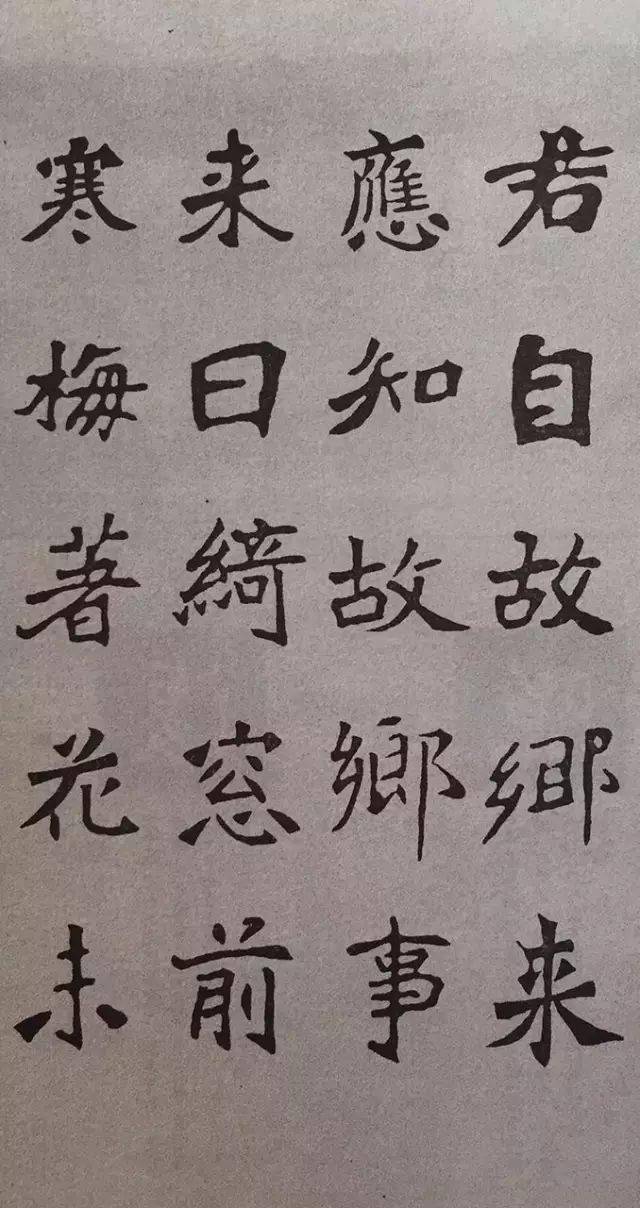 君自故鄉来
應知故鄉事
来日綺窓前
寒梅著花未